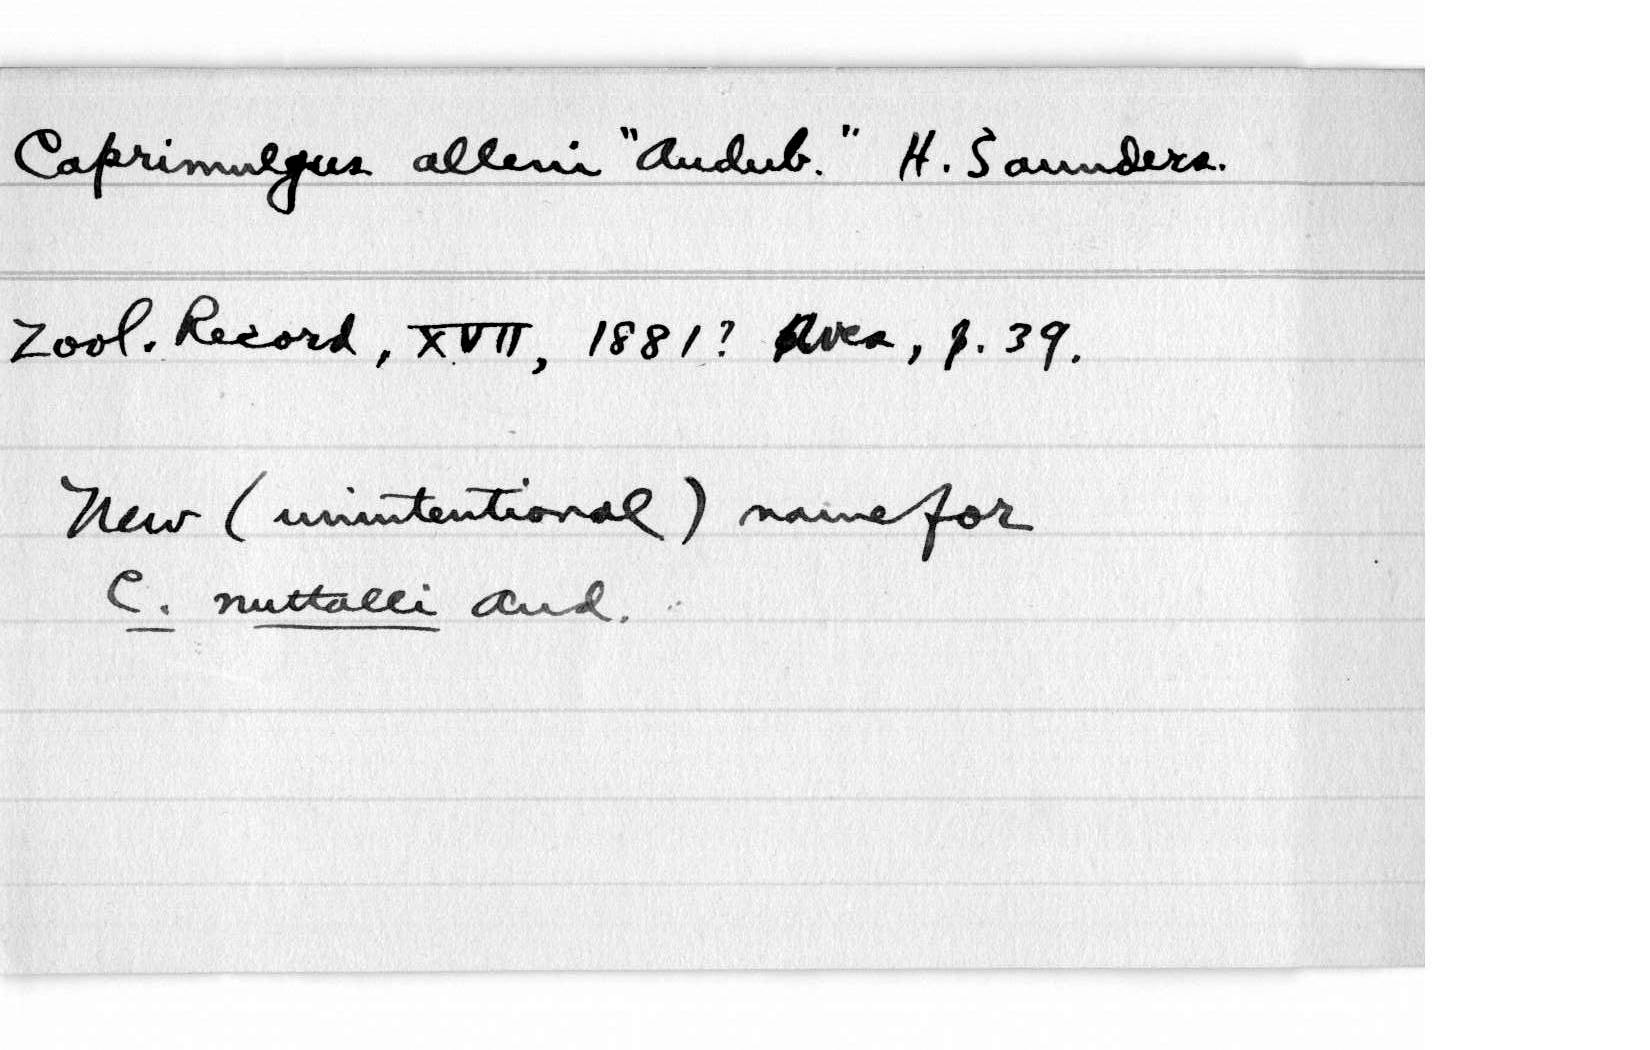 Caprimulgus alleni "Audub." H. Saunders.
Zool. Record, XVII, 1881? Aves, p. 39.
New (unintentional) name for
C. nuttalli Aud.